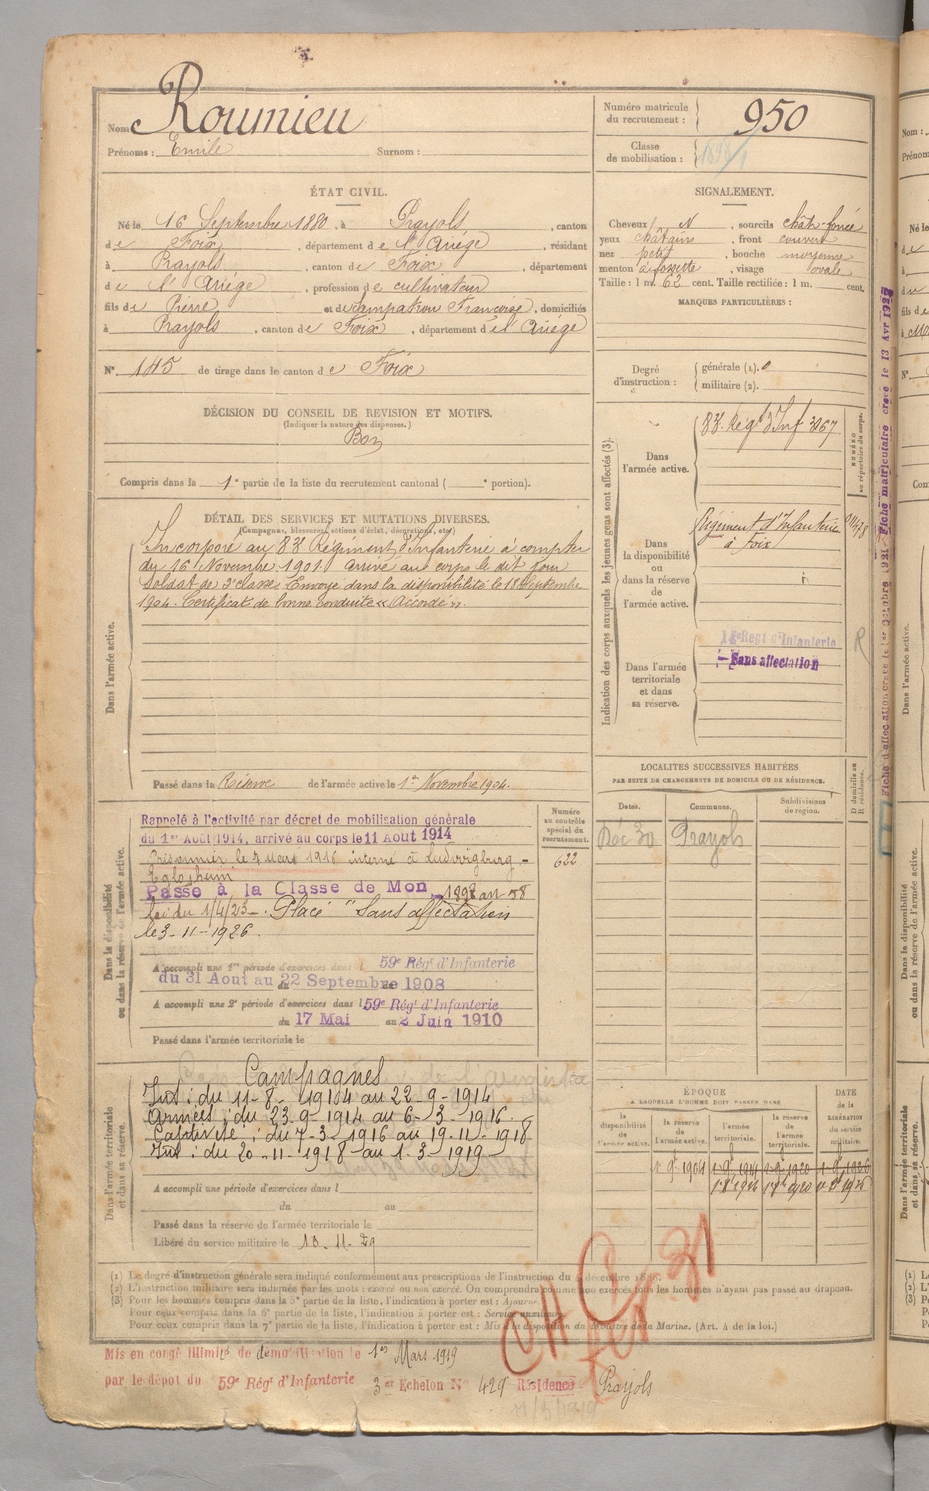 Nom : Roumieu
Prénoms : Emile Surnom :
Numéro matricule du recrutement : 950
Classe de mobilisation :
ÉTAT CIVIL.
Né le 16 Septembre 1880, à Prayols, canton
de Foix, département de l'Ariège, résidant
à Prayols, canton de Foix, département
de l'Ariège, profession de cultivateur
fils de Pierre et de Françoise, domiciliés
à Prayols, canton de Foix, département de l'Ariège
N° 145 de tirage dans le canton de Foix
DÉCISION DU CONSEIL DE REVISION ET MOTIFS.
(Indiquer la nature des dispenses.)
Bon
Compris dans la 1e partie de la liste du recrutement cantonal ( e portion).
SIGNALEMENT.
Cheveux N, sourcils chât-foncé
yeux châtains, front couvert
nez petit, bouche moyenne
menton à fossette, visage ovale
Taille : 1 m. 62 cent. Taille rectifiée : 1 m. cent.
MARQUES PARTICULIÈRES :
Degré d'instruction : générale (1). militaire (2).
DÉTAIL DES SERVICES ET MUTATIONS DIVERSES.
(Campagnes, blessures, actions d'éclat, décorations, etc.)
Dans l'armée active.
Incorporé au 83e Régiment d'Infanterie à compter
du 16 Novembre 1901 arrivé au corps le dit jour
Soldat de 2e classe. Envoyé dans la disponibilité le 18 Septembre
1904. Certificat de bonne conduite « Accordé ».
Passé dans la Réserve de l'armée active le 1er Novembre 1904.
Indication des corps auxquels les jeunes gens sont affectés (3).
NUMÉRO au répertoire du corps.
Dans l'armée active.
83e Régt d'Inf 3267
Dans la disponibilité ou dans la réserve de l'armée active.
Régiment d'Infanterie
à Foix
Dans l'armée territoriale et dans sa réserve.
Régt d'Infanterie
Sans affectation
R
Fiche matriculaire créée le 13 Avr 1927
LOCALITÉS SUCCESSIVES HABITÉES
PAR SUITE DE CHANGEMENTS DE DOMICILE OU DE RÉSIDENCE.
Dates. Communes. Subdivisions de région. D domicile ou R résidence.
Déc 30 Prayols
Dans la disponibilité ou dans la réserve de l'armée active.
Numéro au contrôle spécial du recrutement.
622
Rappelé à l'activité par décret de mobilisation générale
du 1er Août 1914, arrivé au corps le 11 Août 1914
Prisonnier le 7 mars 1916 interné à Ludwigburg -
Eglosheim
Passé à la Classe de Mon 1898 art 58
loi du 1/4/23 - Placé "Sans affectation
le 3-11-1926.
A accompli une 1re période d'exercices dans l 59e Régt d'Infanterie
du 31 Aout au 22 Septembre 1908
A accompli une 2e période d'exercices dans l 59e Régt d'Infanterie
du 17 Mai au 2 Juin 1910
Passé dans l'armée territoriale le
Dans l'armée territoriale et dans sa réserve.
Campagnes
Int : du 11-8-1914 au 22-9-1914
Armées : du 23-9-1914 au 6-3-1916
Captivité : du 7-3-1916 au 19-11-1918
Int : du 20-11-1918 au 1-3-1919
A accompli une période d'exercices dans l
du au
Passé dans la réserve de l'armée territoriale le
Libéré du service militaire le 10-11-29
ÉPOQUE
A LAQUELLE L'HOMME DOIT PASSER DANS
la disponibilité de l'armée active.
la réserve de l'armée active.
l'armée territoriale.
la réserve de l'armée territoriale.
DATE de la LIBÉRATION du service militaire.
1-9bre 1904
(1) Le degré d'instruction générale sera indiqué conformément aux prescriptions de l'instruction du 4 décembre
(2) L'instruction militaire sera indiquée par les mots : exercé ou non exercé. On comprendra comme non exercés tous les hommes n'ayant pas passé au drapeau.
(3) Pour les hommes compris dans la 5e partie de la liste, l'indication à porter est : Ajourné.
Pour ceux compris dans la 6e partie de la liste, l'indication à porter est : Service auxiliaire.
Pour ceux compris dans la 7e partie de la liste, l'indication à porter est : Mis à la disposition du Ministre de la Marine. (Art. 4 de la loi.)
Mis en congé illimité de démobilisation le 1er Mars 1919
par le dépôt du 59e Régt d'Infanterie 3e Echelon N° 429 Résidence Prayols